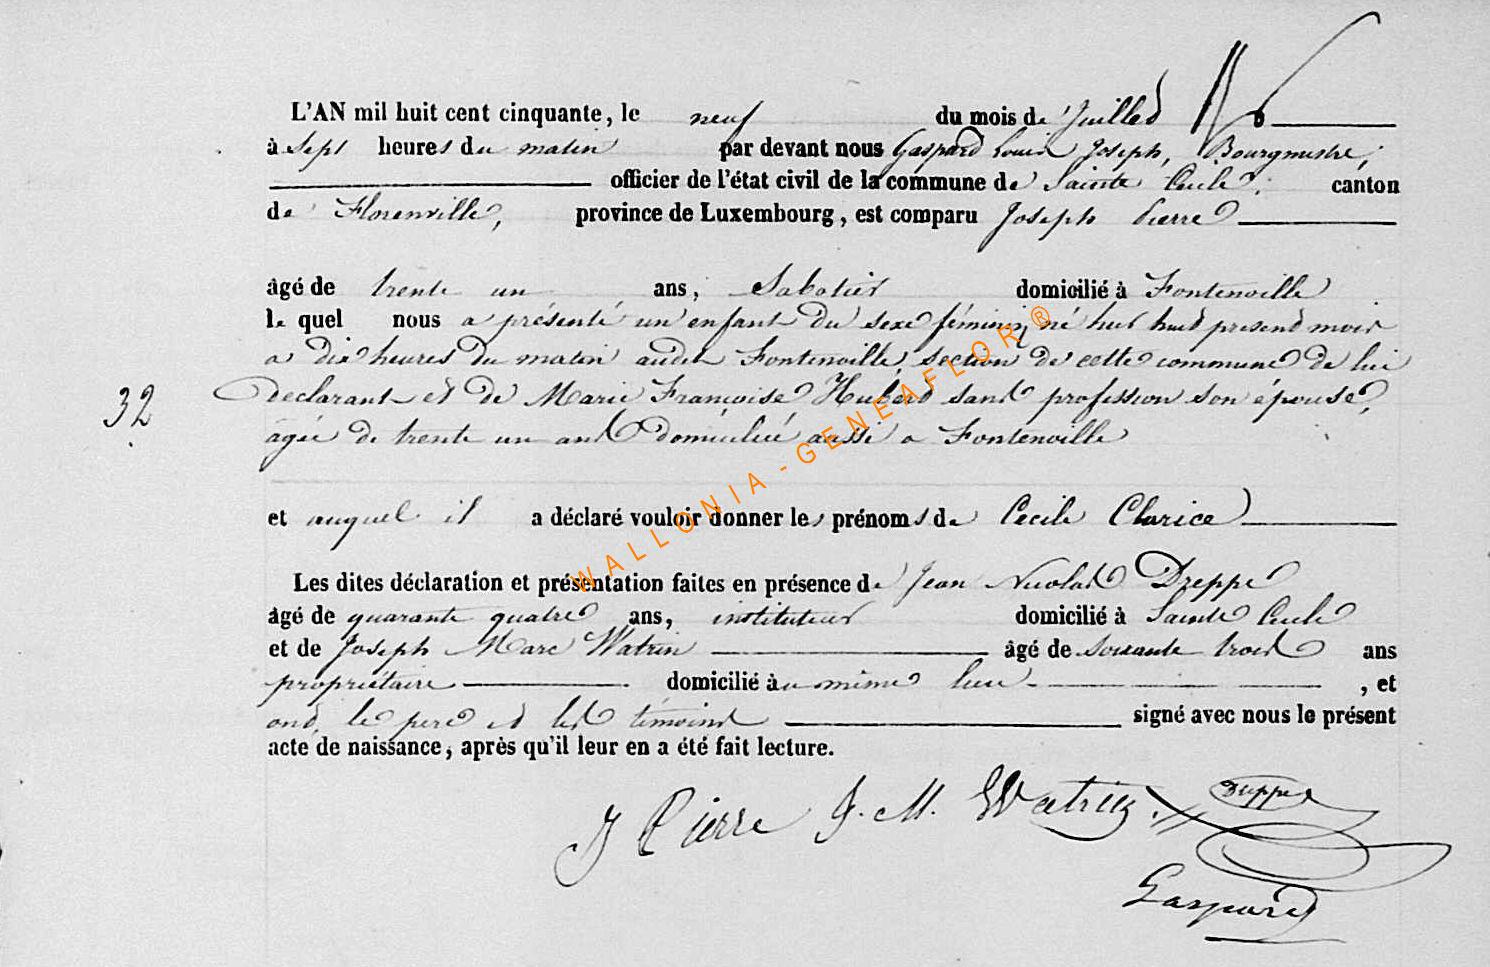 L'AN mil huit cent cinquante, le neuf du mois de Juillet
à sept heures du matin par devant nous Gaspard Louis Joseph, Bourgmestre,
officier de l'état civil de la commune de Sainte Cecile, canton
de Florenville, province de Luxembourg, est comparu Joseph Pierre
âgé de trente un ans, Sabotier domicilié à Fontenoille
le quel nous a présenté un enfant du sexe féminin, né huit present mois
a dix heures du matin audit Fontenoille, section de cette commune de lui
32 declarant et de Marie Françoise Hubert sans profession son épouse,
agée de trente un ans domiciliée aussi a Fontenoille
et auquel il a déclaré vouloir donner les prénoms de Cecile Clarice
Les dites déclaration et présentation faites en présence de Jean Nicolas Dreppe
âgé de quarante quatre ans, instituteur domicilié à Sainte Cecile
et de Joseph Marc Watrin âgé de soixante trois ans
propriétaire domicilié au même lieu , et
ont, le pere et les témoins signé avec nous le présent
acte de naissance, après qu'il leur en a été fait lecture.
J Pierre J. M. Watrin. Dreppe
Gaspard
WALLONIA - GENEAFLOR ®